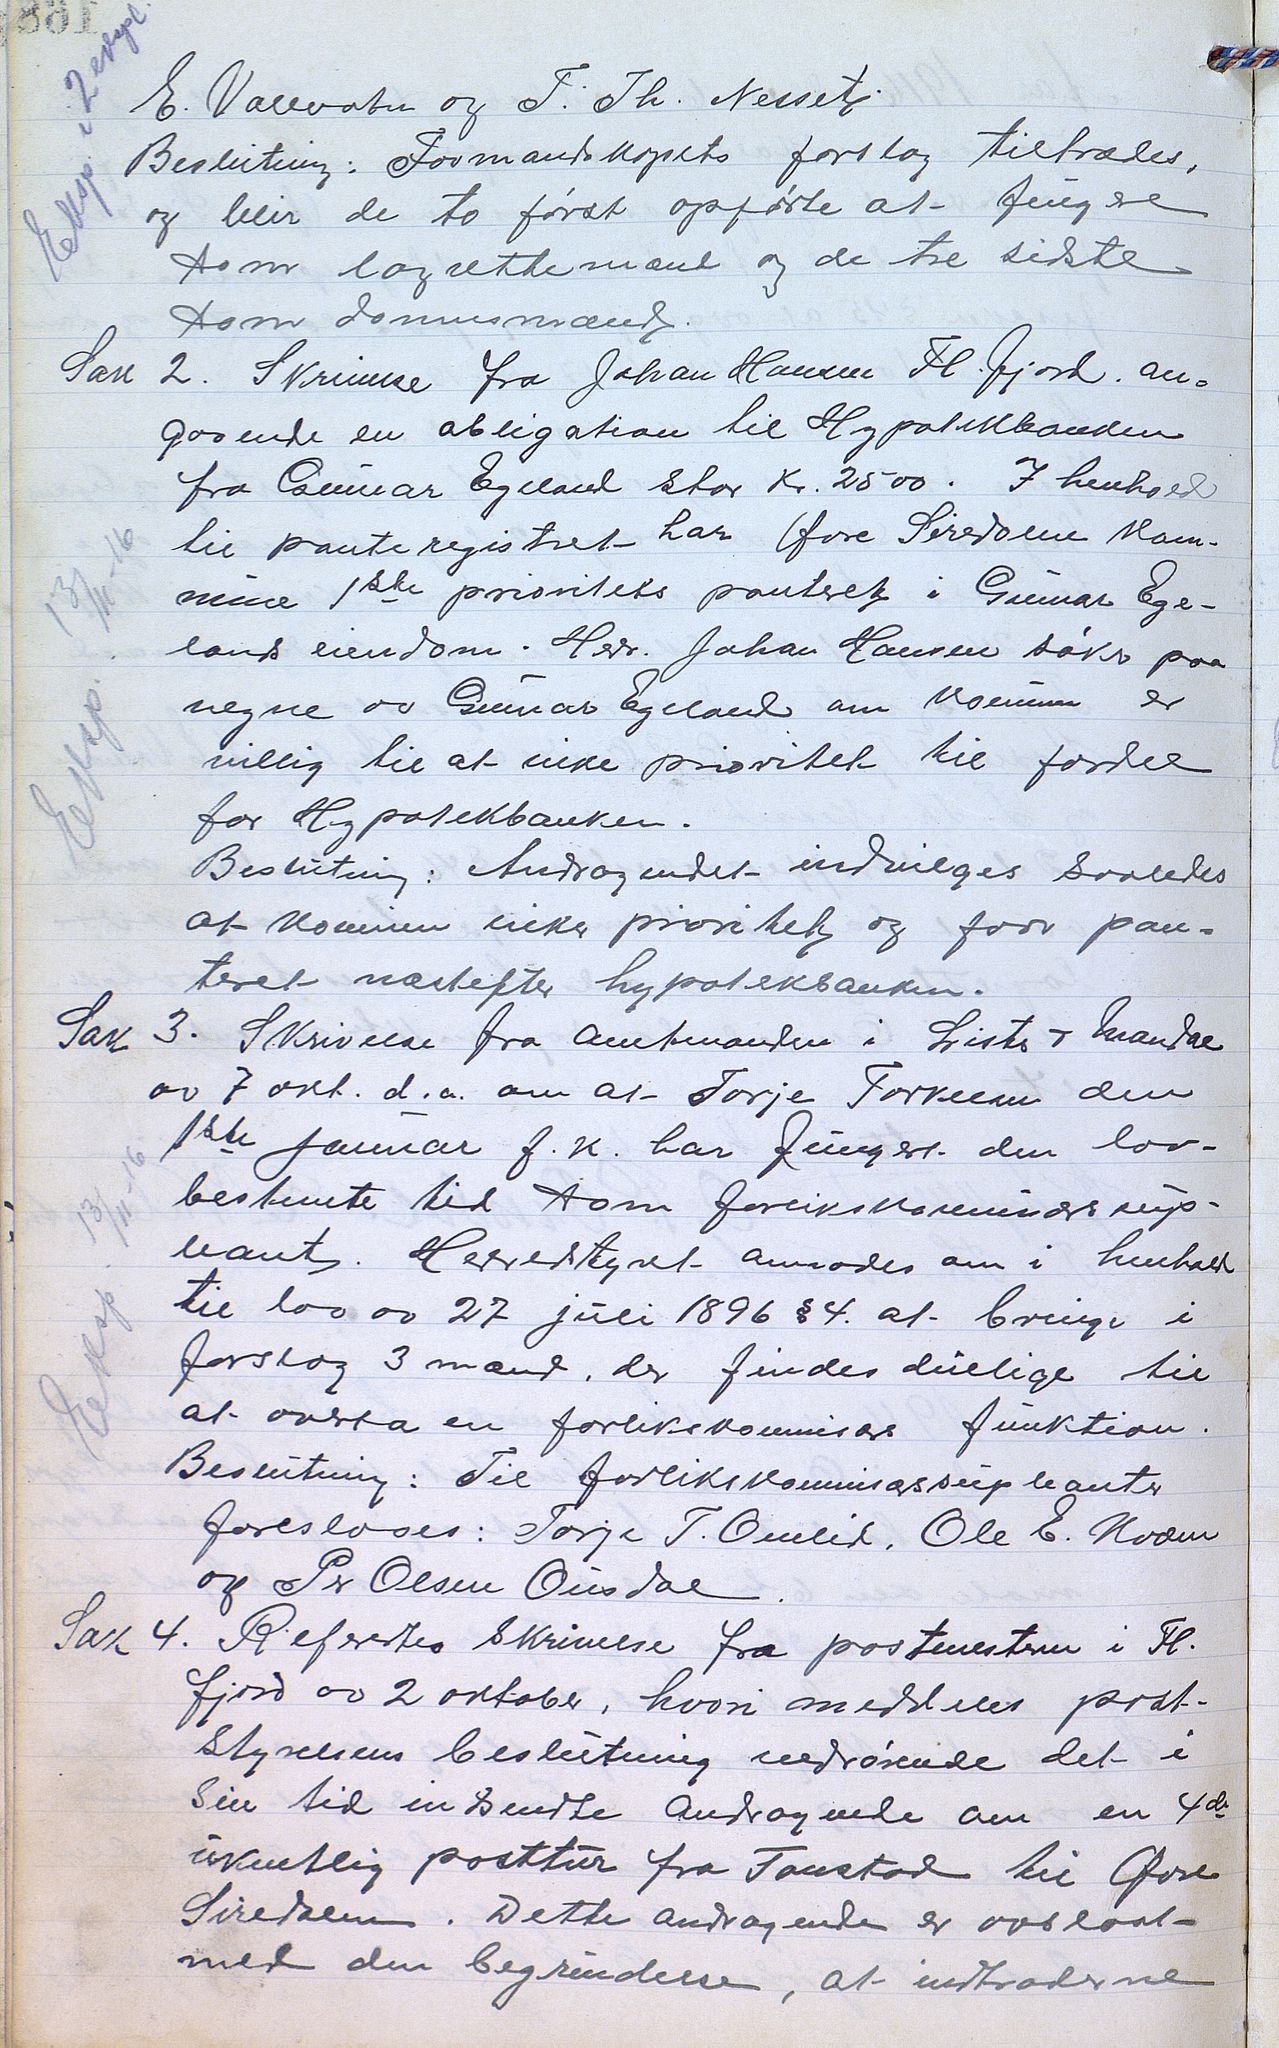 Eksp. i 2 expl.
E. Vallevatn og T. Th. Nesset.
Beslutning: Formandskapets forslag tiltrædes,
og blir de to først opførte at fungere
som lagrettemænd og de tre sidste
som domsmænd.
Sak 2. Skrivelse fra Johan Hansen Fl.fjord. an-
gaaende en obligation til Hypotekbanken
fra Gunnar Egeland stor kr. 2500. I henhold
til panteregistret har Øvre Siredalen kom-
mune 1ste prioritets panteret i Gunnar Ege-
lands eiendom. Herr. Johan Hansen søker paa
vegne av Gunnar Egeland om kommun er
villig til at vike prioritet til fordel
for Hypotekbanken.
Eksp. 13/11-16
Beslutning: Andragendet indvilges saaledes
at kommun viker prioritet og faar pan-
teret næstefter hypotekbanken.
Sak 3. Skrivelse fra amtmanden i Lister & Mandal
av 7 okt. d.a. om at Torje Torkelsen den
1ste januar f.k. har fungert den lov-
bestemte tid som forlikskommissærsup-
leant. Herredstyret anmodes om i henhold
til lov av 27 juli 1896 § 4. at bringe i
forslag 3 mænd, der findes duelige til
at overta en forlikskommissærs funktion.
Eksp. 13/11-16
Beslutning: Til forlikskommissærsupleanter
foreslaaes: Torje T. Omlid, Ole E. Kvæven
og Per Olsen Ousdal.
Sak 4. Refertes skrivelse fra postmesteren i Fl.
fjord av 2 oktober, hvori meddeles post-
styrelsens beslutning vedrørende det i
sin tid insendte andragende om en 4de
ukentlig posttur fra Tonstad til Øvre
Siredalen. Dette andragende er avslaat
med den begrundelse, at indtraderne